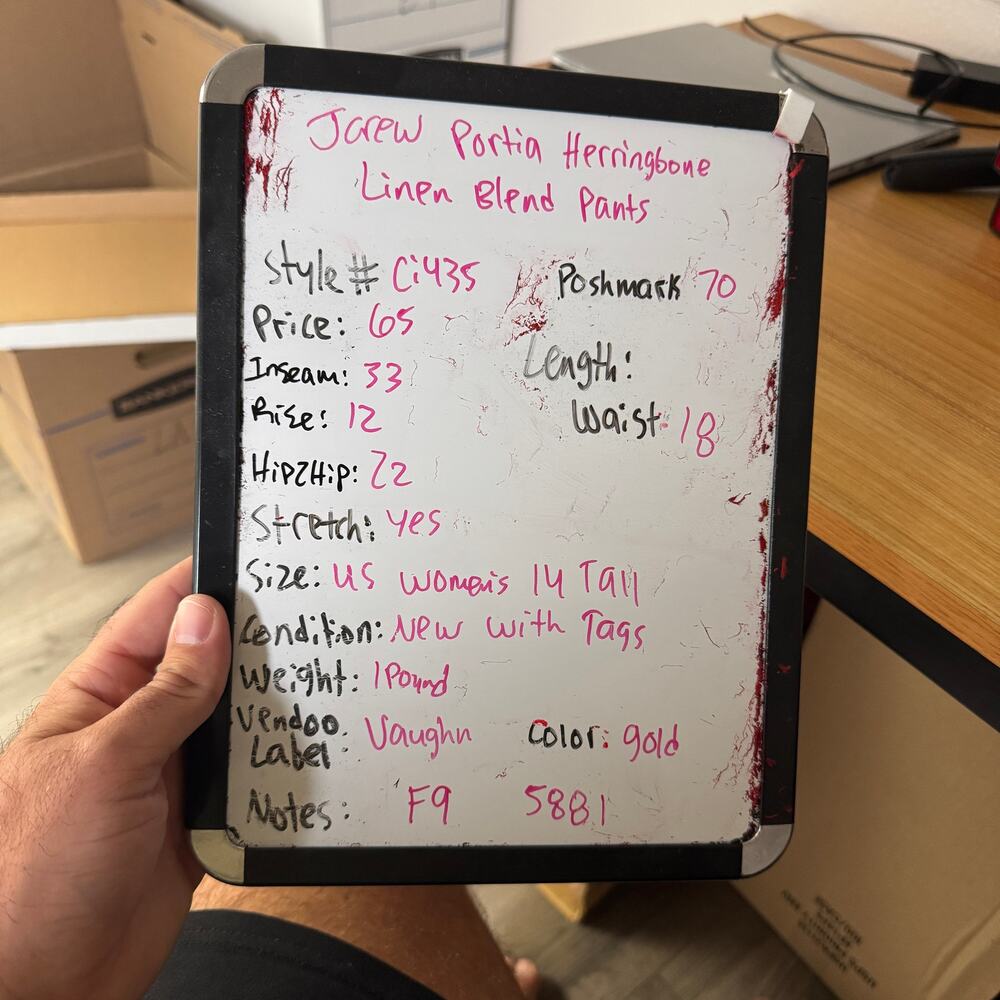 Jcrew Portia Herringbone
Linen Blend Pants
Style# Ci435
Poshmark 70
Price: 65
Length:
Inseam: 33
Rise: 12
Waist: 18
Hip2Hip: 22
Stretch: yes
Size: US Women's 14 Tall
Condition: New with Tags
Weight: 1 Pound
Vendoo Label: Vaughn
Color: gold
Notes: F9 5881